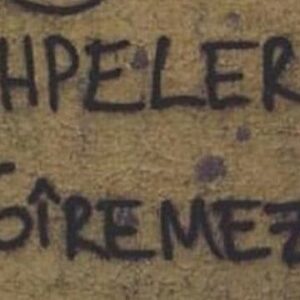 HPELER
OÎREMEZ